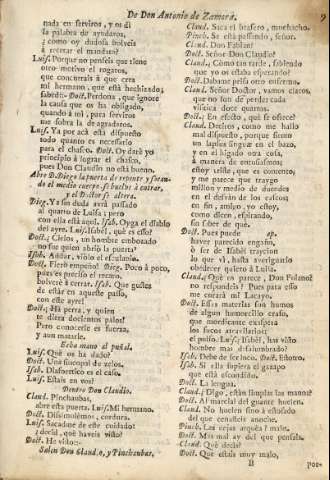 De Don Antonio de Zamora. 9
nada en serviros, y os di
la palabra de ayudaros,
¿como oy dudosa bolveis
à retratar el mandato?
Luis. Porque no penseis que tiene
otro motivo el rogaros,
que concurrais à que crea
mi hermano, que està hechizado;
sabrèis- Doct. Perdona, que ignore
la causa que os ha obligado,
quando à mi, para serviros
me sobra la de agradaros.
Luis. Ya por acà està dispuesto
todo quanto es necessario
para el chasco. Doct. Oy darà yo
principio à lograr el chasco,
pues Don Claudio no està bueno.
Abre D. Diego la puerta de repente, y
do el medio cuerpo se buelve à entrar,
y el Doctor se altera.
Dieg. Ya sin duda avrà passado
al quarto de Luisa; pero
con ella està aqui. Isab. Oyga el diablo
del ayre. Luis. Isabèl, què es esso?
Doct. ¡Cielos, un hombre embozado
no fue quien abriò la puerta?
Isab. Andar, viòlo el esculapio.
Doct. Fiero empeño! Dieg. Poco à poco,
pues es preciso el riesgo,
bolverè à cerrar. Isab. Que gustes
de estàr en aqueste passo,
con este ayre!
Doct. ¡Ha perra, y quien
te diera docientos palos!
Pero conocerle es fuerza,
y aun matarle.
Echa mano al puñal.
Luis. Què os ha dado?
Doct. Una sincopal de zelos.
Isab. Diaforetico es el caso.
Luis. Estais en vos?
Dentro Don Claudio.
Claud. Pinchauvas,
abre esta puerta. Luis. Mi hermano.
Doct. Dissimulèmos, cordura.
Luis. Sacadme de este cuidado:
¿decid, què haveis visto?
Doct. He visto:-
Salen Don Claudio, y Pinchauvas.
Claud. Saca el brasero, muchacho.
Pinch. Se està passando, señor.
Claud. Don Fabian?
Doct. Señor Don Claudio?
Claud. ¿Còmo tan tarde, sabiendo
que yo os estaba esperando?
Doct. Dabame prisa otro enfermo.
Claud. Señor Doctor, vamos claros,
que no son de perder cada
visitica doce quartos.
Doct. ¿En efecto, què se ofrece?
Claud. Decìros, como me hallo
mal dispuesto, porque siento
un lapsus linguæ en el bazo,
y en el higado otra cosa,
à manera de entusiasmos;
estoy triste, que es contento,
y me parece que traygo
millon y medio de duendes
en el desvàn de los cascos;
en fin, amigo, yo estoy,
como dicen, espirando,
sin saber de què.
Doct. Pues puede ap.
haver parecido engaño,
ò ser de Isabèl traycion
lo que vì, hasta averiguarlo
obedecer quiero à Luisa.
Claud. ¿Què os parece, Don Fulano?
no respondeis? Pues para esso
me curarà mi Lacayo.
Doct. Essas materias son humos
de algun humorcillo craso,
que mordicante exaspera
los succos atrabiliarios:
el pulso. Luis. ¡Isabèl, has visto
hombre mas desalumbrado?
Isab. Debe de ser loco. Doct. Estotro.
Isab. Si ella supiera el gazapo
que està escondido.
Doct. La lengua.
Claud. ¿Digo, estàn limpias las manos?
Doct. Al marcial del guante huelen.
Claud. No huelen sino à estofado
del que cenasteis anoche.
Pinch. Las cejas arquèa? malo.
Doct. Mas mal ay del que pensaba.
Claud. Què decìs?
Doct. Que estais muy malo,
B por-